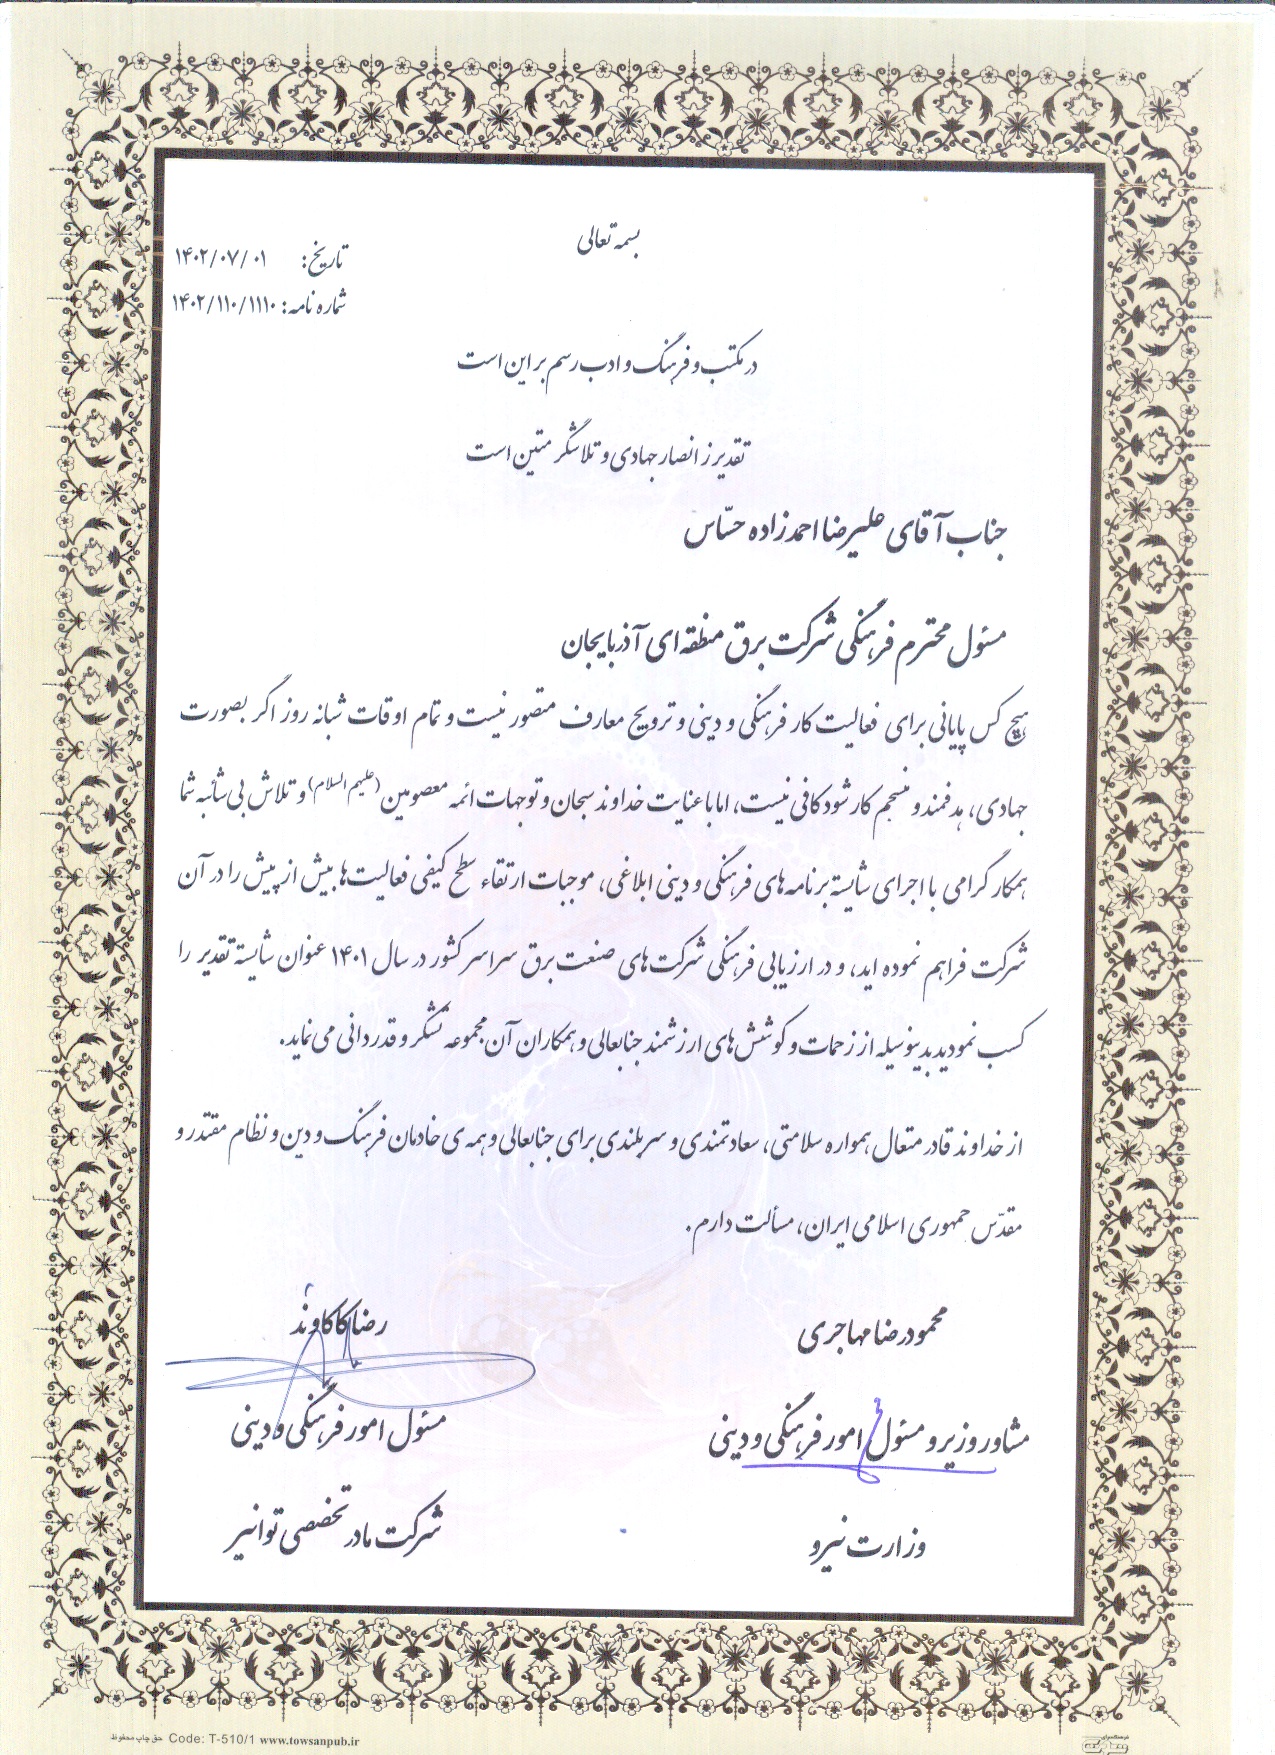 بسمه تعالی
تاریخ: ۱۴۰۲/۰۷/۰۱
شماره نامه: ۱۴۰۲/۱۱۰/۱۱۱۰
در مکتب و فرهنگ و ادب رسم بر این است
تقدیر ز انصار جهادی و تلاشگر متین است
جناب آقای علیرضا احمدزاده حسّاس
مسئول محترم فرهنگی شرکت برق منطقه ای آذربایجان
هیچ کس پایانی برای فعالیت کار فرهنگی و دینی و ترویج معارف متصور نیست و تمام اوقات شبانه روز اگر بصورت
جهادی، هدفمند و منسجم کار شود کافی نیست، اما با عنایت خداوند سبحان و توجهات ائمه معصومین (علیهم السلام) و تلاش بی شائبه شما
همکار گرامی با اجرای شایسته برنامه های فرهنگی و دینی ابلاغی، موجبات ارتقاء سطح کیفی فعالیت ها بیش از پیش را در آن
شرکت فراهم نموده اید، و در ارزیابی فرهنگی شرکت های صنعت برق سراسر کشور در سال ۱۴۰۱ عنوان شایسته تقدیر را
کسب نمودید بدینوسیله از زحمات و کوشش های ارزشمند جنابعالی و همکاران آن مجموعه تشکر و قدردانی می نماید.
از خداوند قادر متعال همواره سلامتی، سعادتمندی و سربلندی برای جنابعالی و همه ی خادمان فرهنگ و دین و نظام مقتدر و
مقدّس جمهوری اسلامی ایران، مسألت دارم.
محمودرضا مهاجری
مشاور وزیر و مسئول امور فرهنگی و دینی
وزارت نیرو
رضا کاکاوند
مسئول امور فرهنگی و دینی
شرکت مادر تخصصی توانیر
حق چاپ محفوظ Code: T-510/1 www.towsanpub.ir